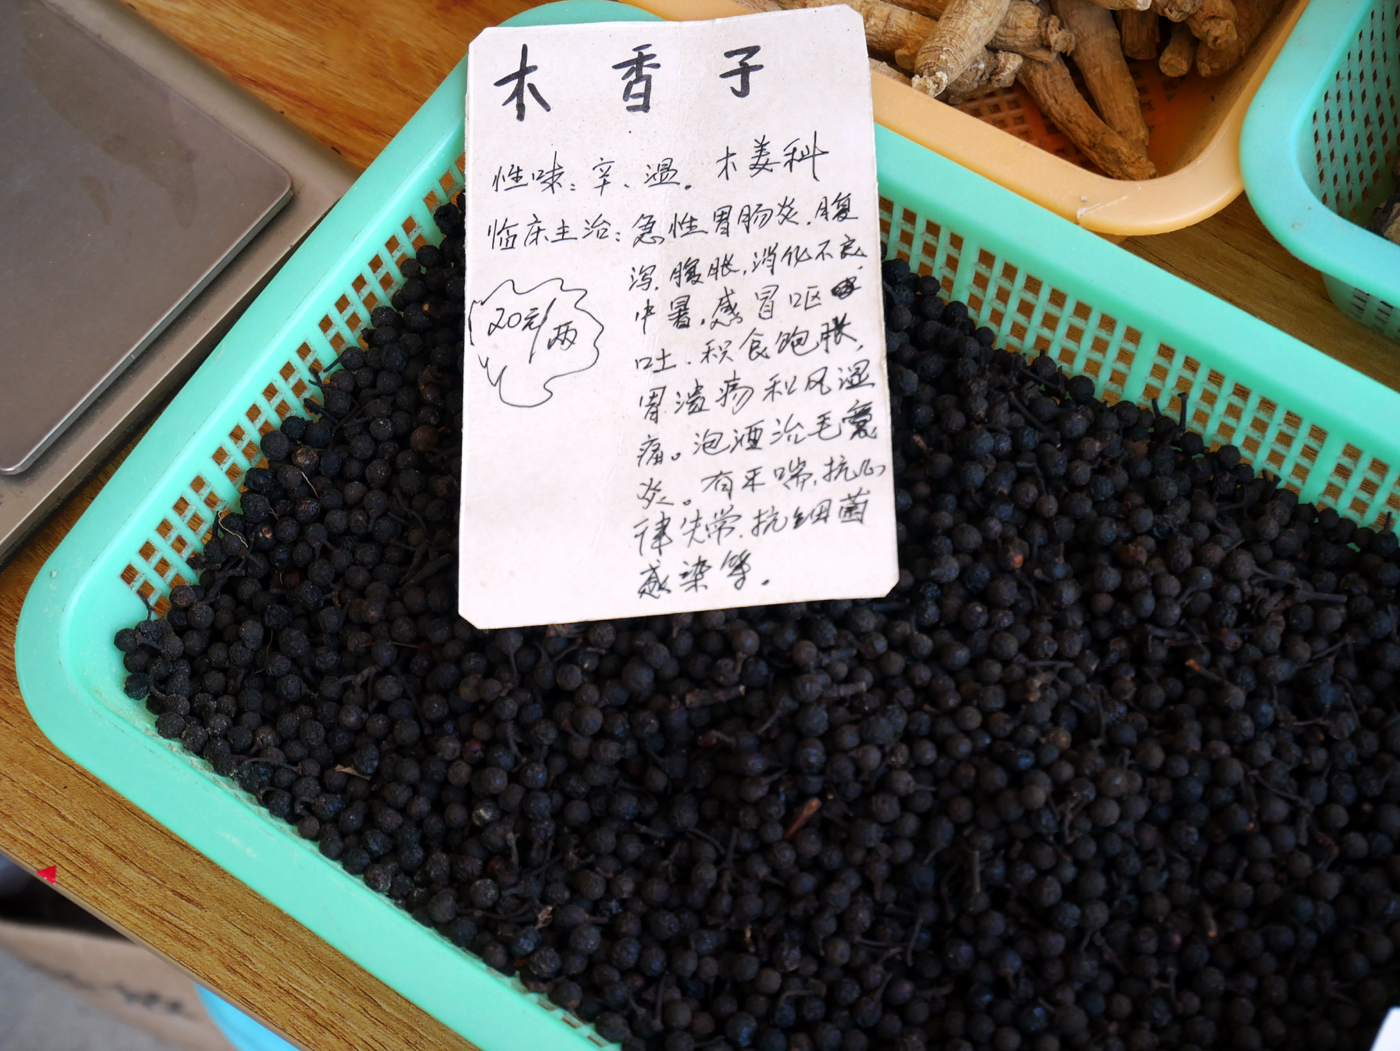 木香子
性味：辛、温。木姜科
临床主治：急性胃肠炎.腹
泻.腹胀,消化不良.
中暑,感冒呕
吐.积食饱胀,
胃溃疡和风湿
痛。泡酒治毛囊
炎。有平喘,抗心
律失常.抗细菌
感染等。
20元/两